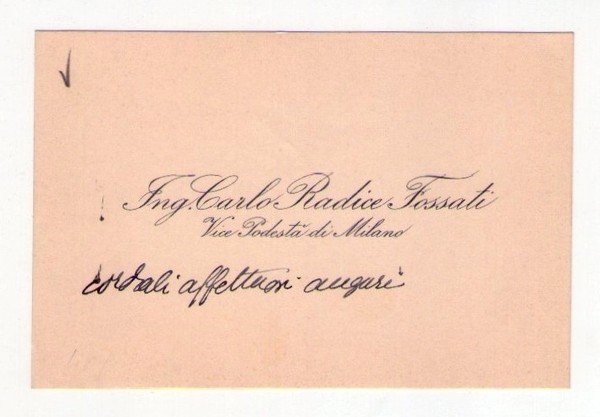 Ing. Carlo Radice Fossati
Vice Podestà di Milano
cordiali affettuosi auguri